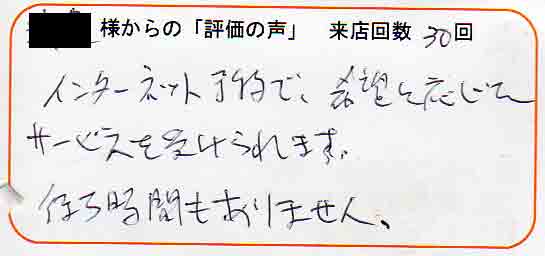 様からの「評価の声」 来店回数 30回
インターネット予約で、希望に応じて
サービスを受けられます。
待ち時間もありません。